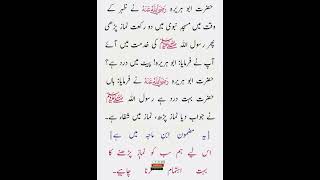 حضرت ابو ہریرہ رضی اللہ عنہ نے ظہر کے
وقت میں مسجد نبوی میں دو رکعت نماز پڑھی
پھر رسول اللہ ﷺ کی خدمت میں آئے
آپ نے فرمایا: ابو ہریرہ! پیٹ میں درد ہے؟
حضرت ابو ہریرہ رضی اللہ عنہ نے فرمایا: ہاں
حضرت بہت درد ہے رسول اللہ ﷺ
نے جواب دیا نماز پڑھو، نماز میں شفاء ہے۔
[یہ مضمون ابن ماجہ میں ہے]
اس لیے ہم سب کو نماز پڑھنے کا
بہت اہتمام کرنا چاہیے۔